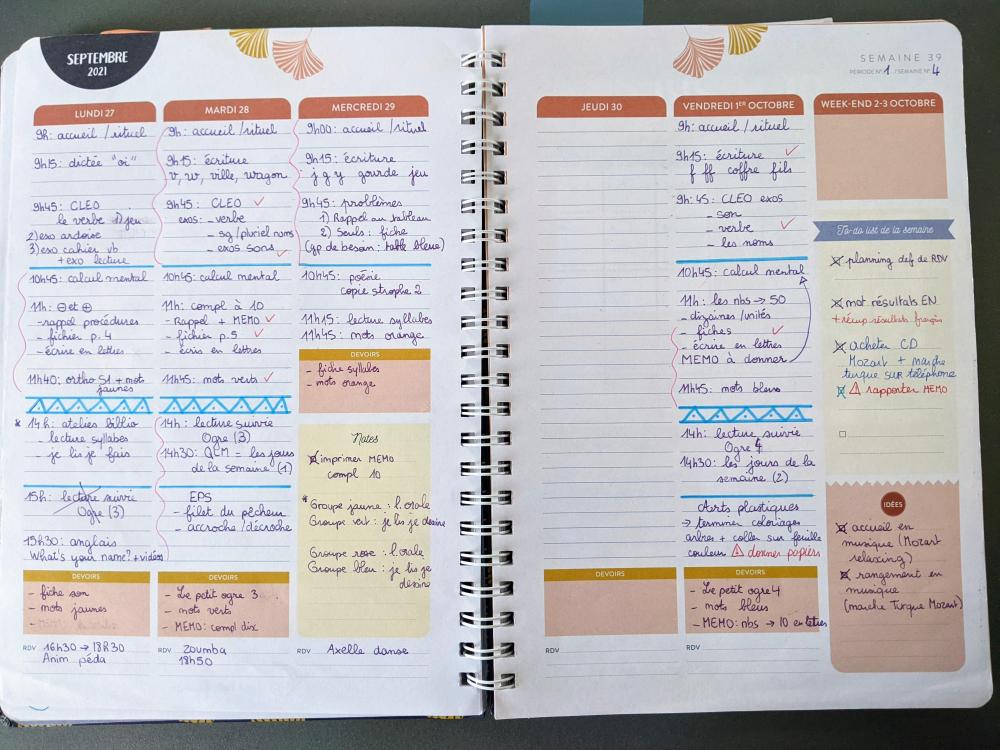 SEPTEMBRE
2021
LUNDI 27
9h: accueil / rituel
9h15: dictée "oi"
9h45: CLEO
le verbe 1) jeu
2) exo ardoise
3) exo cahier vb
+ exo lecture
10h45: calcul mental
11h: ⊖ et ⊕
- rappel procédures
- fichier p. 4
- écrire en lettres
11h40: ortho S1 + mots
jaunes
* 14h: atelier biblio
- lecture syllabes
- je lis je fais
15h: lecture suivie
Ogre (3)
15h30: anglais
What's your name? + vidéos
DEVOIRS
- fiche son
- mots jaunes
-
RDV 16h30 → 18h30
Anim péda
MARDI 28
9h: accueil / rituel
9h15: écriture
v, w, ville, wagon
9h45: CLEO ✓
exos: - verbe
- sg/pluriel noms
- exos sons ✓
10h45: calcul mental
11h: compl à 10
- Rappel + MEMO ✓
- fichier p.5 ✓
- écris en lettres
11h45: mots verts ✓
14h: lecture suivie
Ogre (3)
14h30: QLM - les jours
de la semaine (1)
EPS
- filet du pêcheur
- accroche / décroche
DEVOIRS
- Le petit ogre 3
- mots verts
- MEMO: compl dix
RDV Zoumba
18h50
MERCREDI 29
9h00: accueil / rituel
9h15: écriture
j g y gourde jeu
9h45: problèmes
1) Rappel au tableau
2) Seuls: fiche
(gp de besoin: table bleue)
10h45: poésie
copie strophe 2
11h15: lecture syllabes
11h45: mots orange
DEVOIRS
- fiche syllabes
- mots orange
Notes
☒ imprimer MEMO
compl 10
* Groupe jaune: l.orale
Groupe vert: je lis je dessine
Groupe rose: l.orale
Groupe bleu: je lis je
dessine
RDV Axelle danse
SEMAINE 39
PÉRIODE N° 1 / SEMAINE N° 4
JEUDI 30
DEVOIRS
RDV
VENDREDI 1ER OCTOBRE
9h: accueil / rituel
9h15: écriture ✓
f ff coffre fils
9h45: CLEO exos
- son
- verbe ✓
- les noms
10h45: calcul mental
11h: les nbs → 50
- dizaines / unités
- fiches ✓
- écrire en lettres
MEMO à donner
11h45: mots bleus
14h: lecture suivie
Ogre 4
14h30: les jours de la
semaine (2)
Arts plastiques
→ terminer coloriages
arbres + coller sur feuille
couleur ⚠ donner papiers
DEVOIRS
- Le petit ogre 4
- mots bleus
- MEMO: nbs → 10 en lettres
RDV
WEEK-END 2-3 OCTOBRE
To-do list de la semaine
☒ planning def de RDV
☒ mot résultats EN
+ récup résultats français
☒ acheter CD
Mozart + marche
turque sur téléphone
☒ ⚠ rapporter MEMO
☐
IDÉES
☒ accueil en
musique (Mozart
relaxing)
☒ rangement en
musique
(marche Turque Mozart)